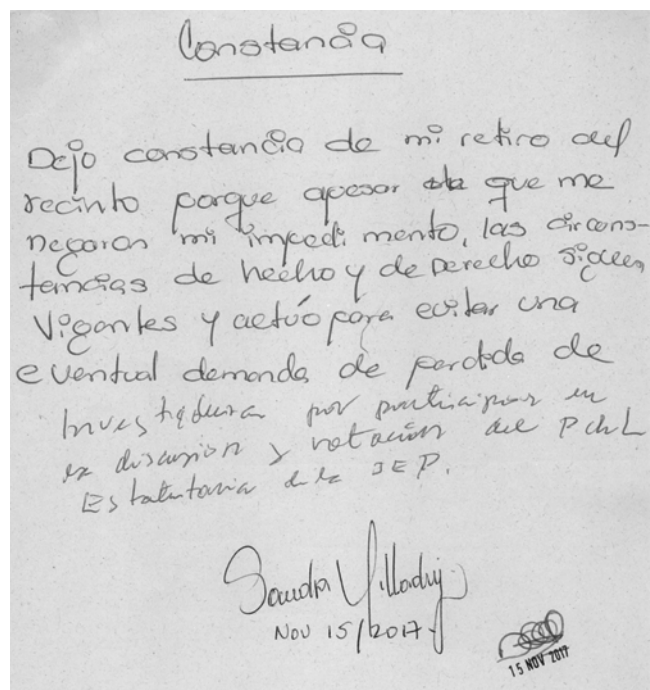 Constancia
Dejo constancia de mi retiro del
recinto porque apesar de que me
negaron mi impedimento, las circuns-
tancias de hecho y de Derecho siguen
Vigentes y actúo para evitar una
eventual demanda de perdida de
Investidura por participar en
la discusion y votación del P de L
Estatutaria de la JEP.
Sandra Villadiego
Nov 15/2017
15 NOV 2017